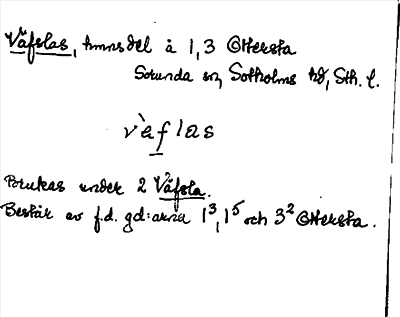 Väfslas, hmnsdel å 1, 3 Ottersta
Sorunda sn, Sotholms hd, Sth. l.
vàflas
Brukas under 2 Väfsla.
Består av f.d. gd:arna 1³, 1⁵ och 3² Ottersta.